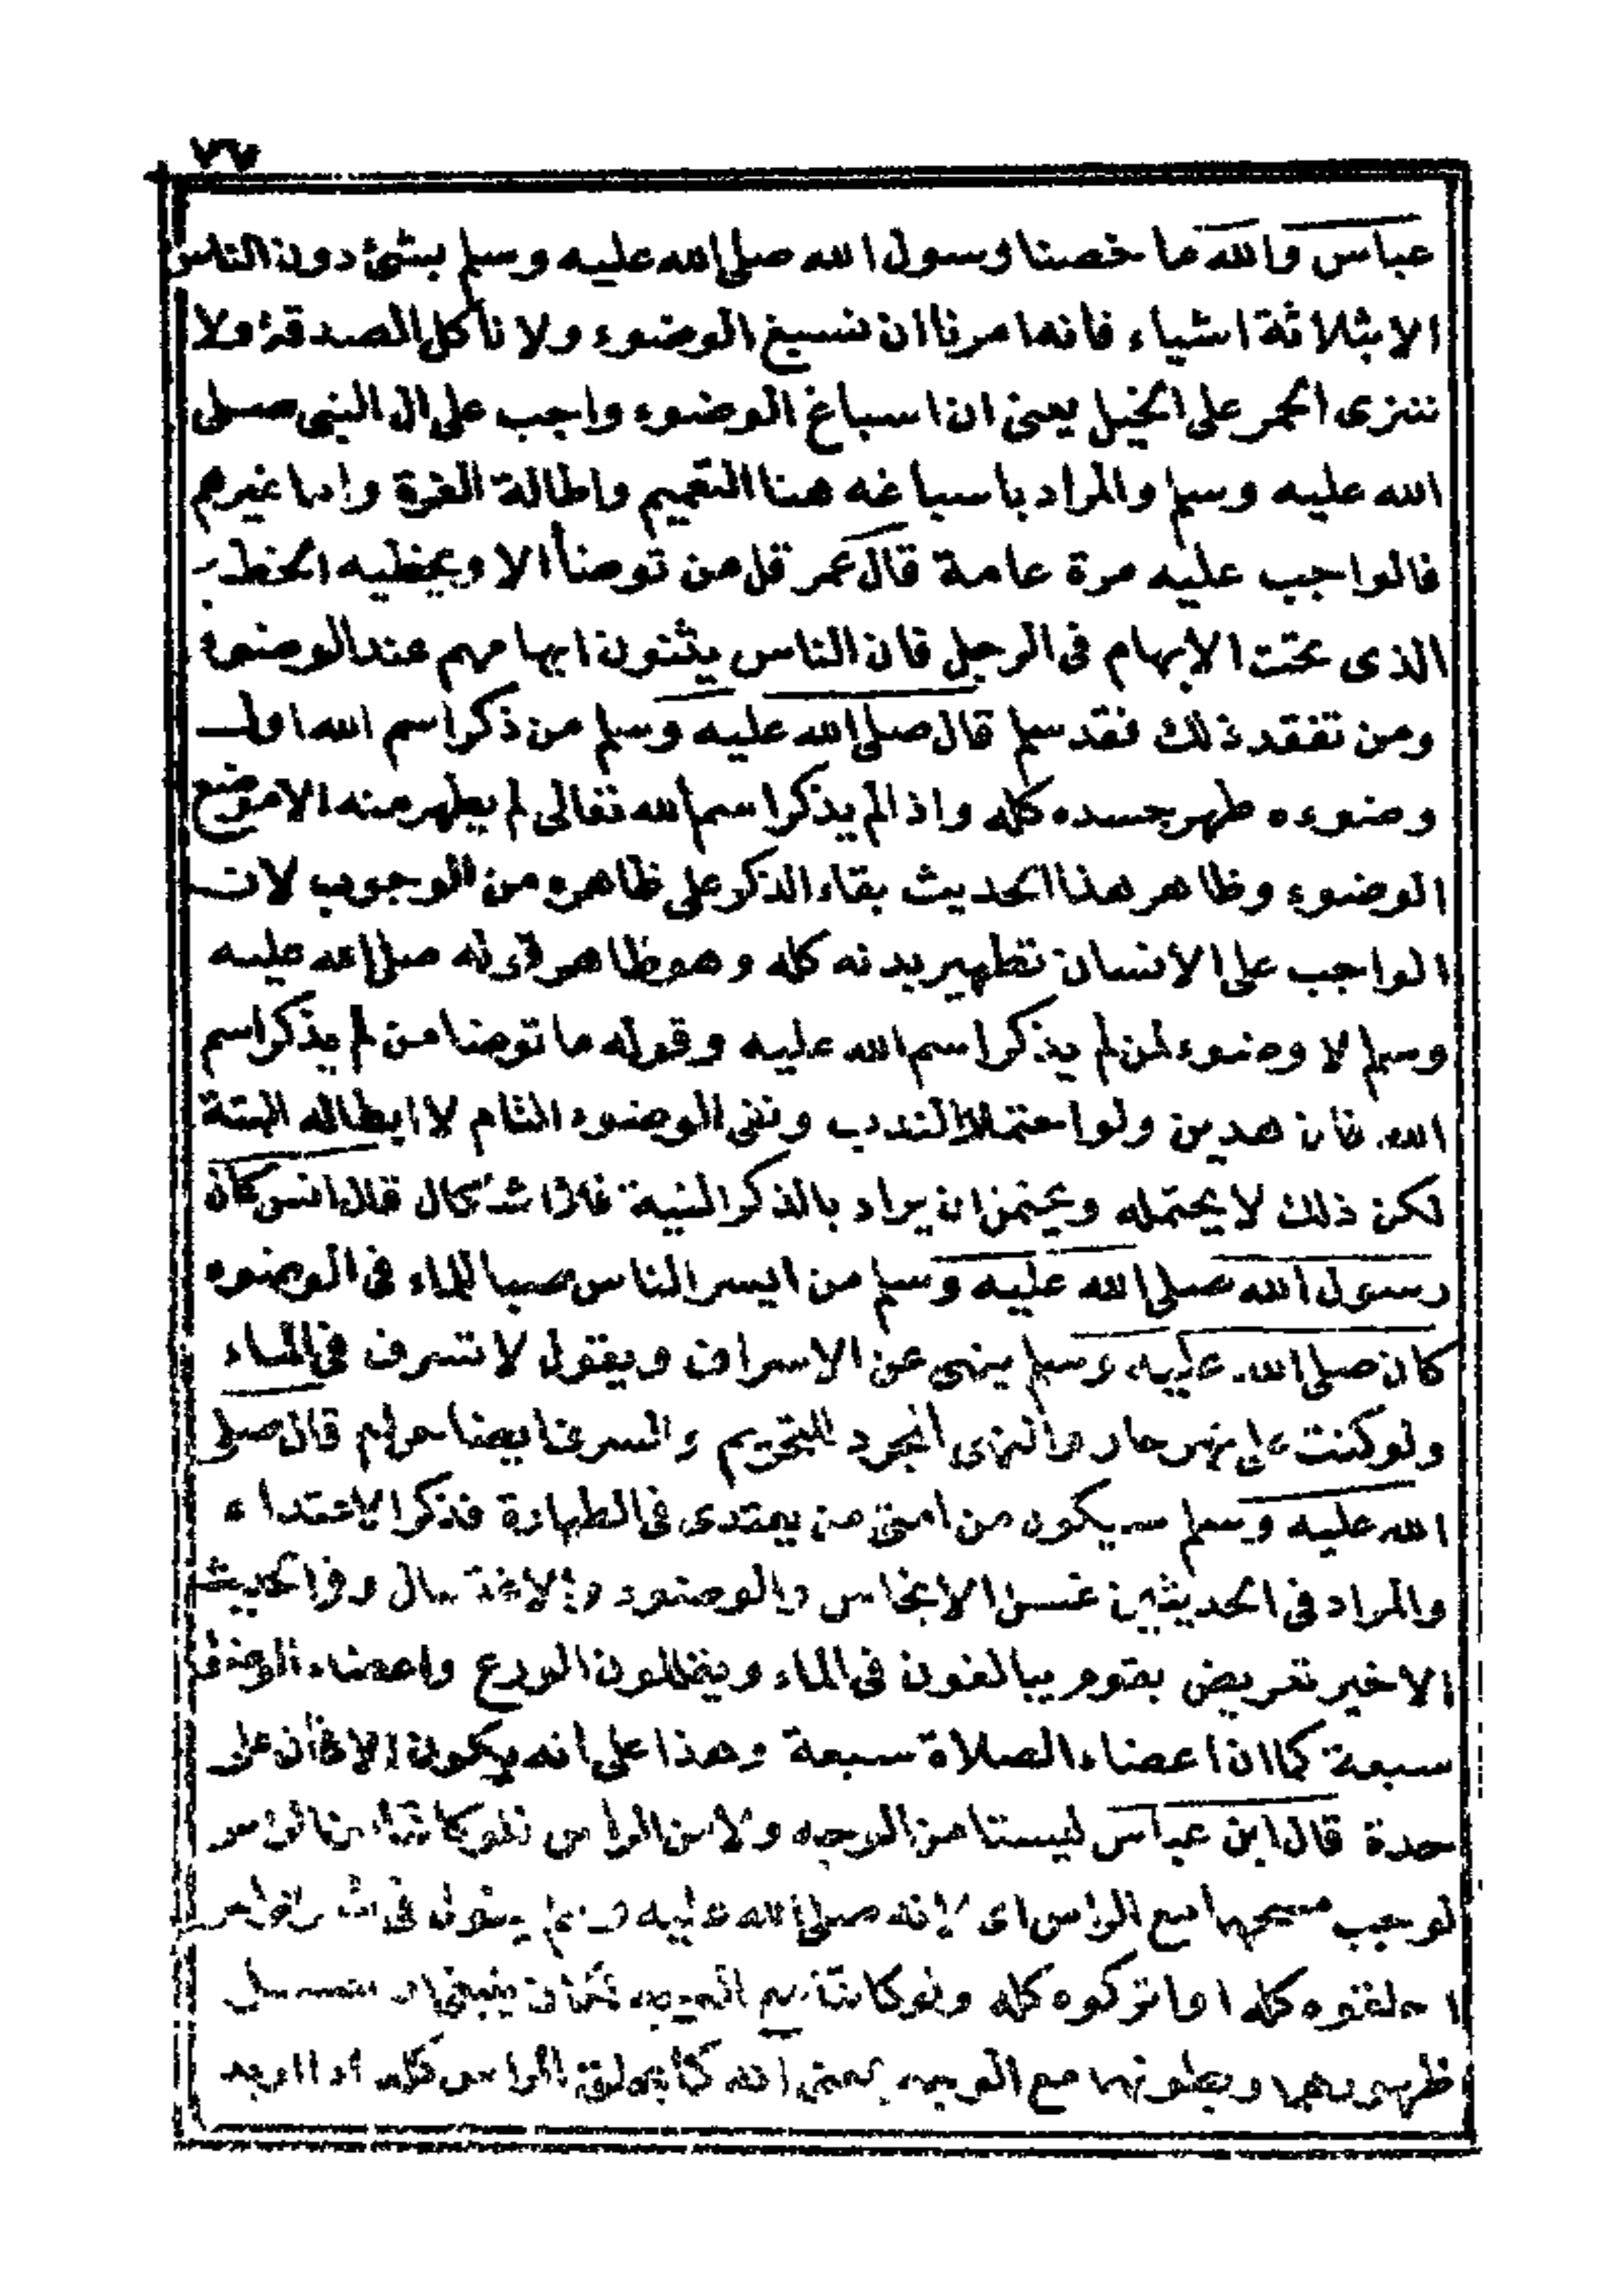 ٧٦
عباس والله ما خصنا رسول الله صلى الله عليه وسلم بشئ دون الناس
الا بثلاثة اشياء فانه امرنا ان نسبغ الوضوء ولا ناكل الصدقة ولا
ننزى الحمر على الخيل يعنى ان اسباغ الوضوء واجب على ال النبى صلى
الله عليه وسلم والمراد باسباغه هنا التعميم واطالة الغرة واما غيرهم
فالواجب عليه مرة عامة قال عمر قل من توضأ الا ويخطيه الخط
الذى تحت الابهام فى الرجل فان الناس يثنون ابهامهم عند الوضوء
ومن تفقد ذلك فقد سلم قال صلى الله عليه وسلم من ذكر اسم الله اول
وضوءه طهر جسده كله واذا لم يذكر اسم الله تعالى لم يطهر منه الا موضع
الوضوء وظاهر هذا الحديث بقاء الذكر على ظاهره من الوجوب لان
الواجب على الانسان تطهير بدنه كله وهو ظاهر قوله صلى الله عليه
وسلم لا وضوء لمن لم يذكر اسم الله عليه وقوله ما توضا من لم يذكر اسم
الله فان هدين ولو احتملا الندب ونفى الوضوء التام لا ابطاله البتة
لكن ذلك لا يحتمله ويحتمل ان يراد بالذكر النية فلا اشكال قال انس كان
رسول الله صلى الله عليه وسلم من ايسر الناس صبا للماء فى الوضوء
كان صلى الله عليه وسلم ينهى عن الاسراف ويقول لا تسرف فى الماء
ولو كنت على نهر جار والنهى المجرد للتحريم والسرف ايضا حرام قال صلى
الله عليه وسلم سيكون من امتى من يعتدى فى الطهارة فذكر الاعتداء
والمراد فى الحديثين غسل الانجاس والوضوء والاغتسال وفى الحديث
الاخير تعريض بقوم يبالغون فى الماء ويظلون الورع واعضاء الوضوء
سبعة كما ان اعضاء الصلاة سبعة وهذا على انه يكون الاذان على
حدة قال ابن عباس ليستا من الوجه ولا من الراس فلو كانتا من الراس
لوجب مسحهما مع الراس اى لانه صلى الله عليه وسلم يقول فى
احلقوه كله او اتركوه كله ولو كانتا من الوجه لكان ينبغى ان يغسل
ظهورهما وبطونهما مع الوجه بمعنى انه كما يحلق الراس كله اذا اريد